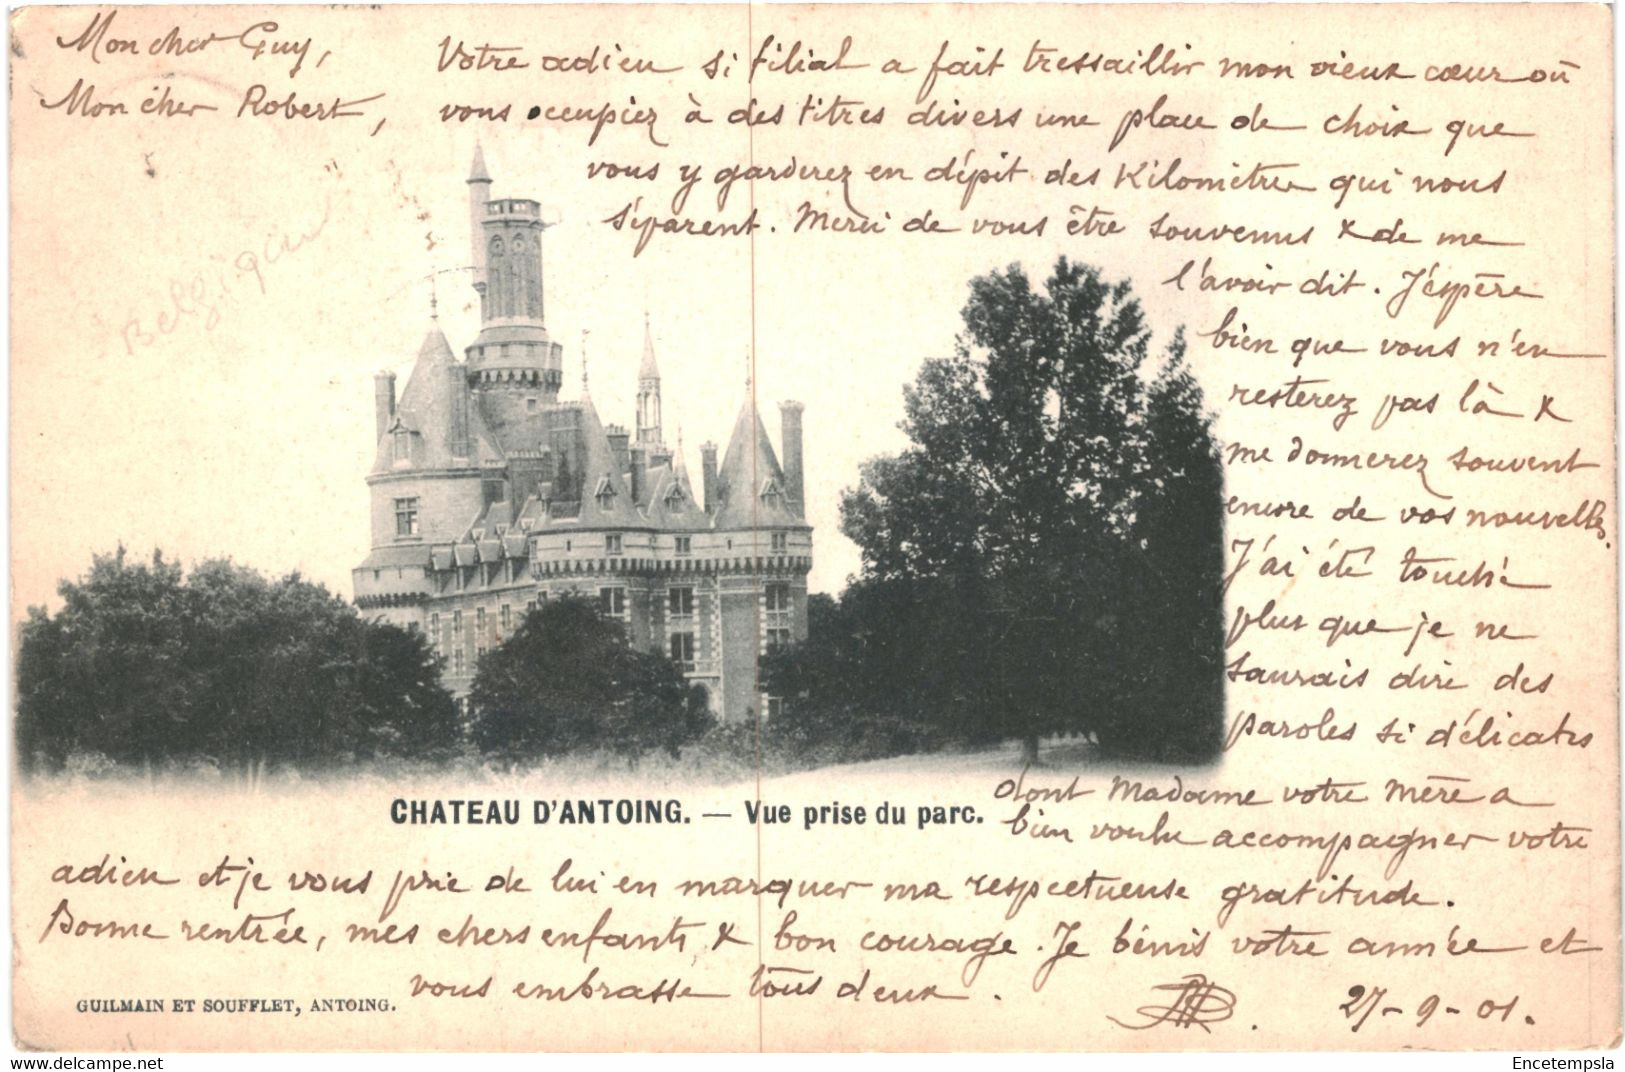 Mon cher Guy,
Mon cher Robert,
Votre adieu si filial a fait tressaillir mon vieux cœur où
vous occupiez à des titres divers une place de choix que
vous y garderez en dépit des Kilomètres qui nous
séparent. Merci de vous être souvenus & de me
l'avoir dit. J'éspère
bien que vous n'en
resterez pas là &
me donnerez souvent
encore de vos nouvelles.
J'ai été touché
plus que je ne
saurais dire des
paroles si délicates
dont Madame votre Mère a
bien voulu accompagner votre
adieu et je vous prie de lui en marquer ma respectueuse gratitude.
Bonne rentrée, mes chers enfants & bon courage. Je bénis votre année et
vous embrasse tous deux.
27-9-01.
Belgique
CHATEAU D'ANTOING. — Vue prise du parc.
GUILMAIN ET SOUFFLET, ANTOING.
https://www.delcampe.net
Encetempsla